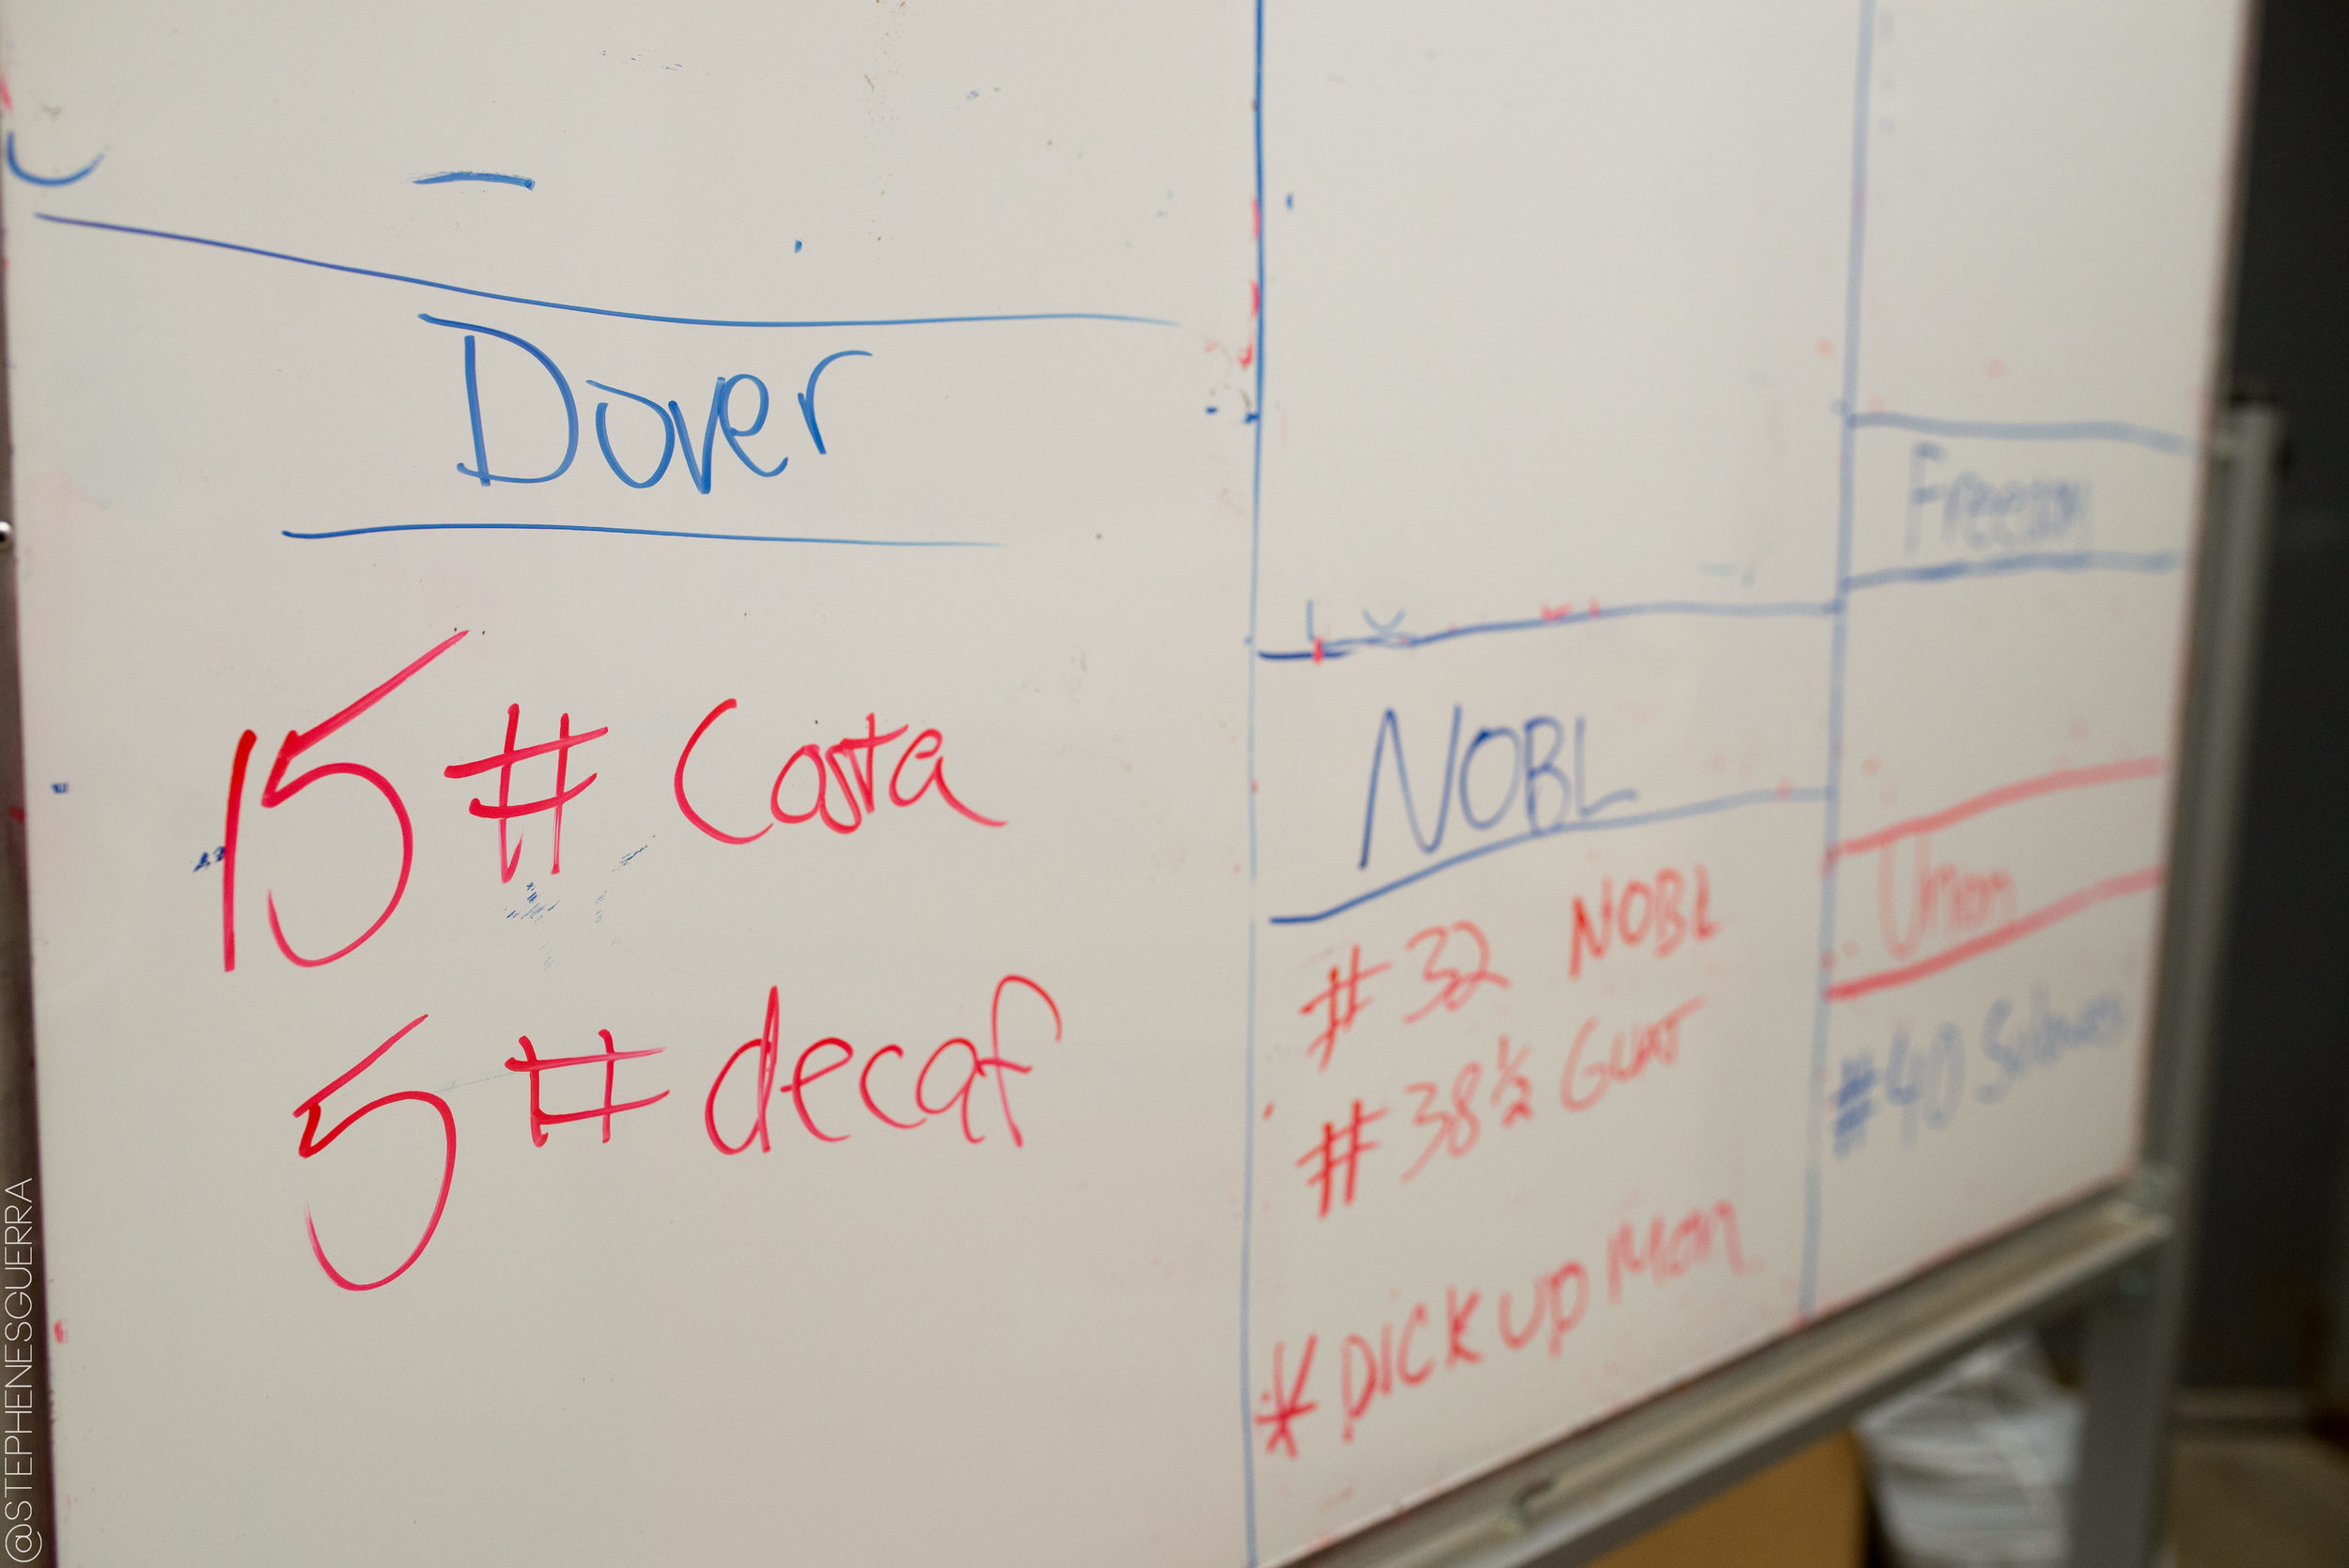 Dover
15# Costa
5# decaf
NOBL
#32 NOBL
#38½ GUAT
*PICK UP MON
Union
#40
@STEPHENESGUERRA